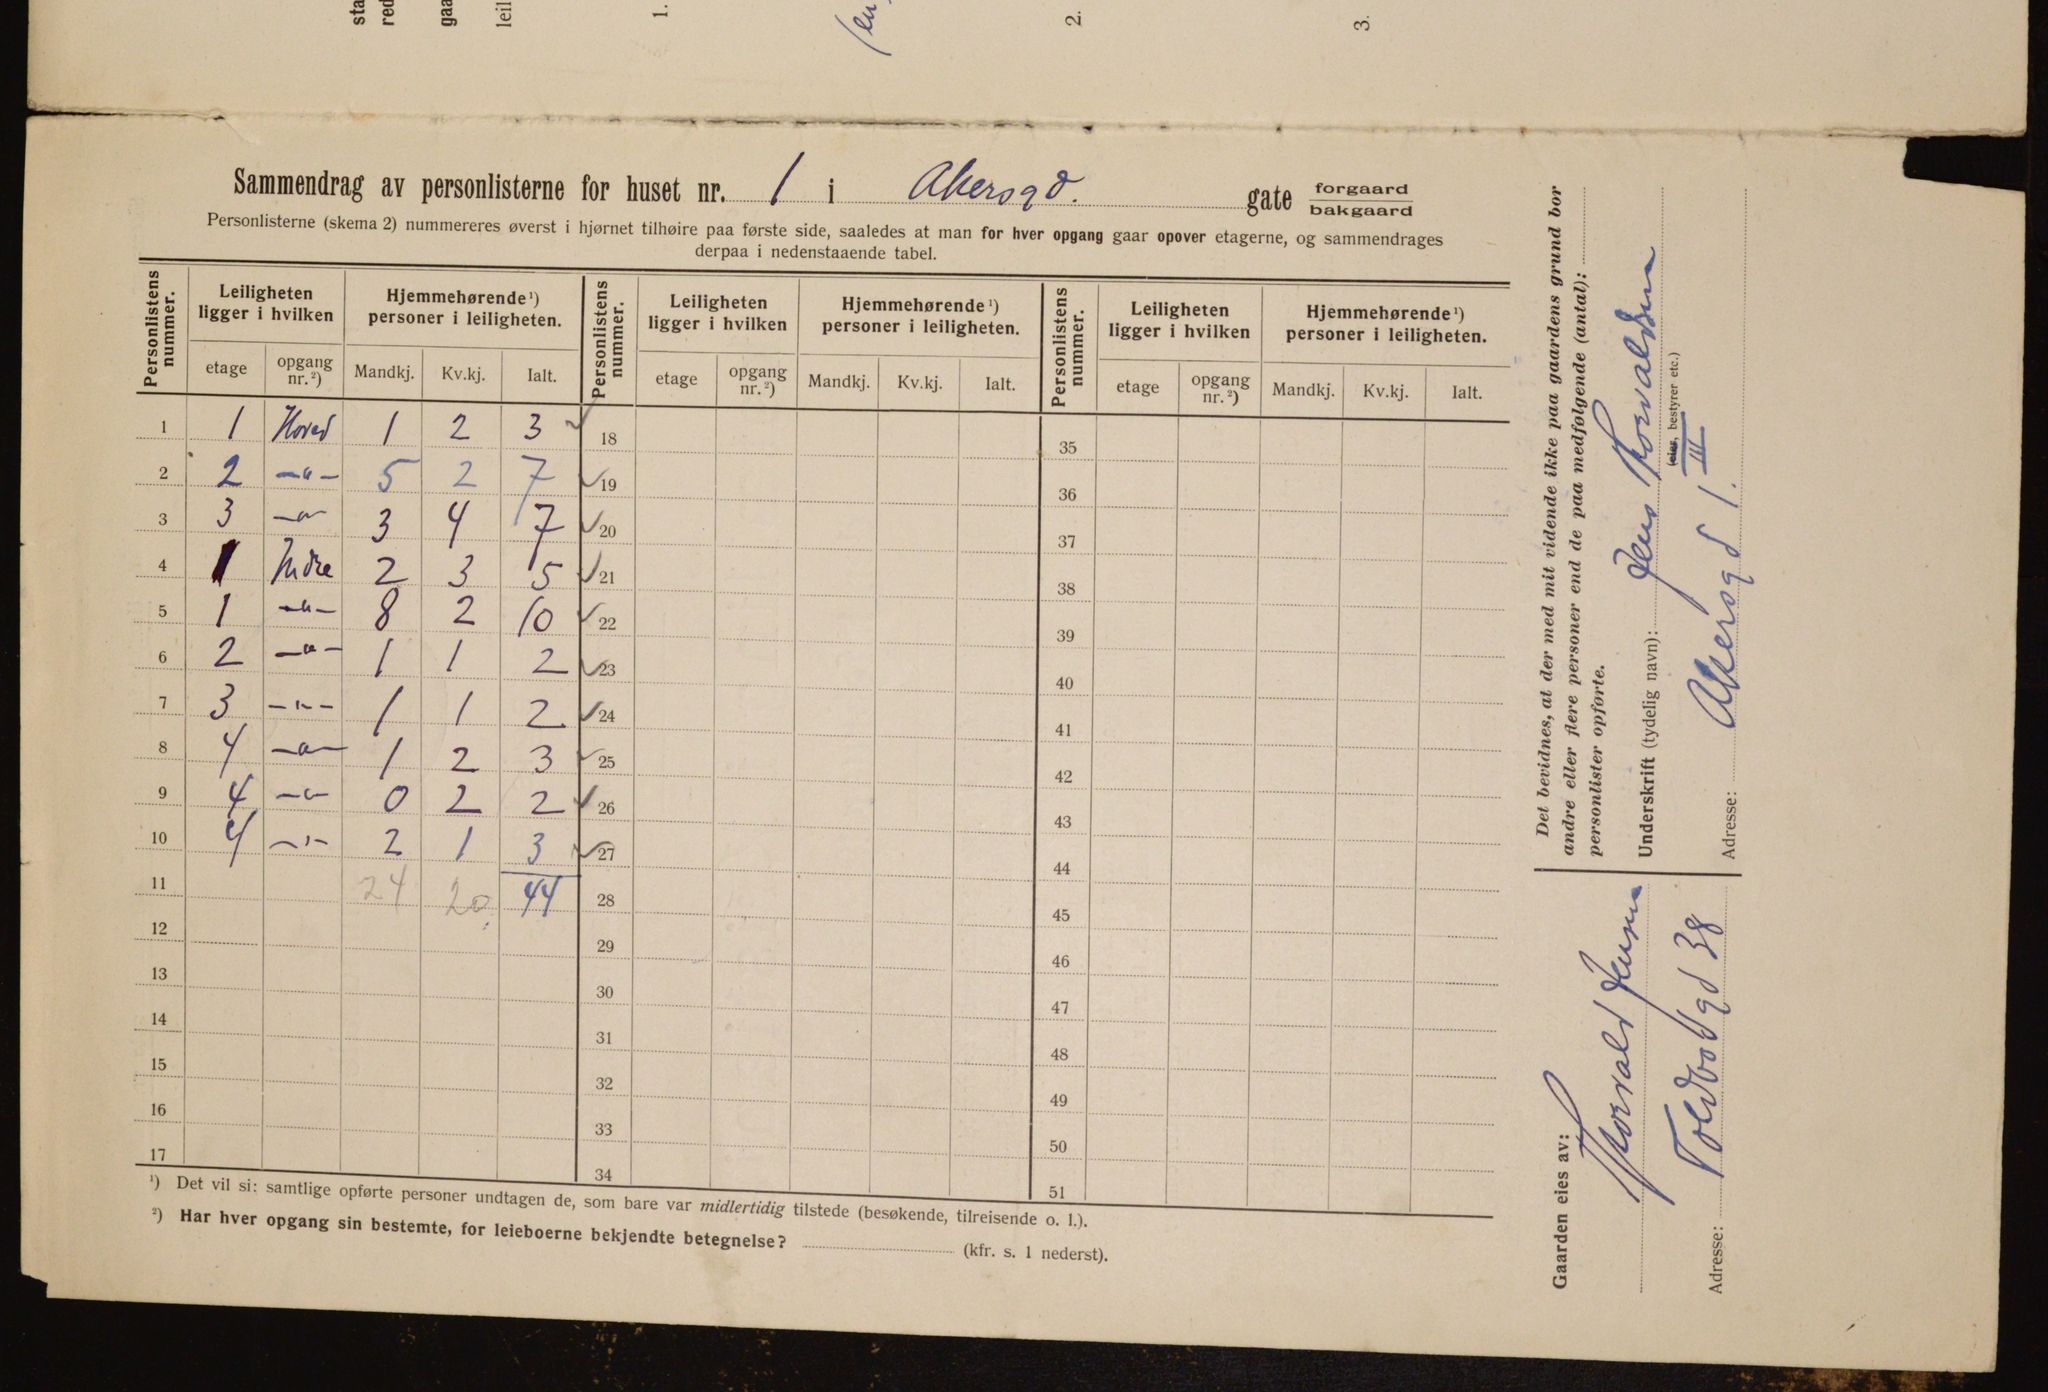 sta
red
gaa
leil
1.
(en
2.
3.
Sammendrag av personlisterne for huset nr. 1 i Akersgd. gate forgaard bakgaard
Personlisterne (skema 2) nummereres øverst i hjørnet tilhøire paa første side, saaledes at man for hver opgang gaar opover etagerne, og sammendrages
derpaa i nedenstaaende tabel.
Personlistens nummer. Leiligheten ligger i hvilken Hjemmehørende¹) personer i leiligheten. Personlistens nummer. Leiligheten ligger i hvilken Hjemmehørende¹) personer i leiligheten. Personlistens nummer. Leiligheten ligger i hvilken Hjemmehørende¹) personer i leiligheten.
etage opgang nr.²) Mandkj. Kv.kj. Ialt. etage opgang nr.²) Mandkj. Kv.kj. Ialt. etage opgang nr.²) Mandkj. Kv.kj. Ialt.
1 1 Hoved 1 2 3 ✓ 18 35
2 2 —"— 5 2 7 ✓ 19 36
3 3 —"— 3 4 7 ✓ 20 37
4 1 Indre 2 3 5 ✓ 21 38
5 1 —"— 8 2 10 ✓ 22 39
6 2 —"— 1 1 2 ✓ 23 40
7 3 —"— 1 1 2 ✓ 24 41
8 4 —"— 1 2 3 ✓ 25 42
9 4 —"— 0 2 2 ✓ 26 43
10 4 —"— 2 1 3 ✓ 27 44
11 24 20 44 28 45
12 29 46
13 30 47
14 31 48
15 32 49
16 33 50
17 34 51
¹) Det vil si: samtlige opførte personer undtagen de, som bare var midlertidig tilstede (besøkende, tilreisende o. l.).
²) Har hver opgang sin bestemte, for leieboerne bekjendte betegnelse? (kfr. s. 1 nederst).
Det bevidnes, at der med mit vidende ikke paa gaardens grund bor
andre eller flere personer end de paa medfølgende (antal):
personlister opførte.
Underskrift (tydelig navn): Jens Thorvaldsen
(eier, bestyrer etc.)
III
Adresse: Akersgd 1.
Gaarden eies av: Thorvald Jensen
Adresse: Toldbodgd 38